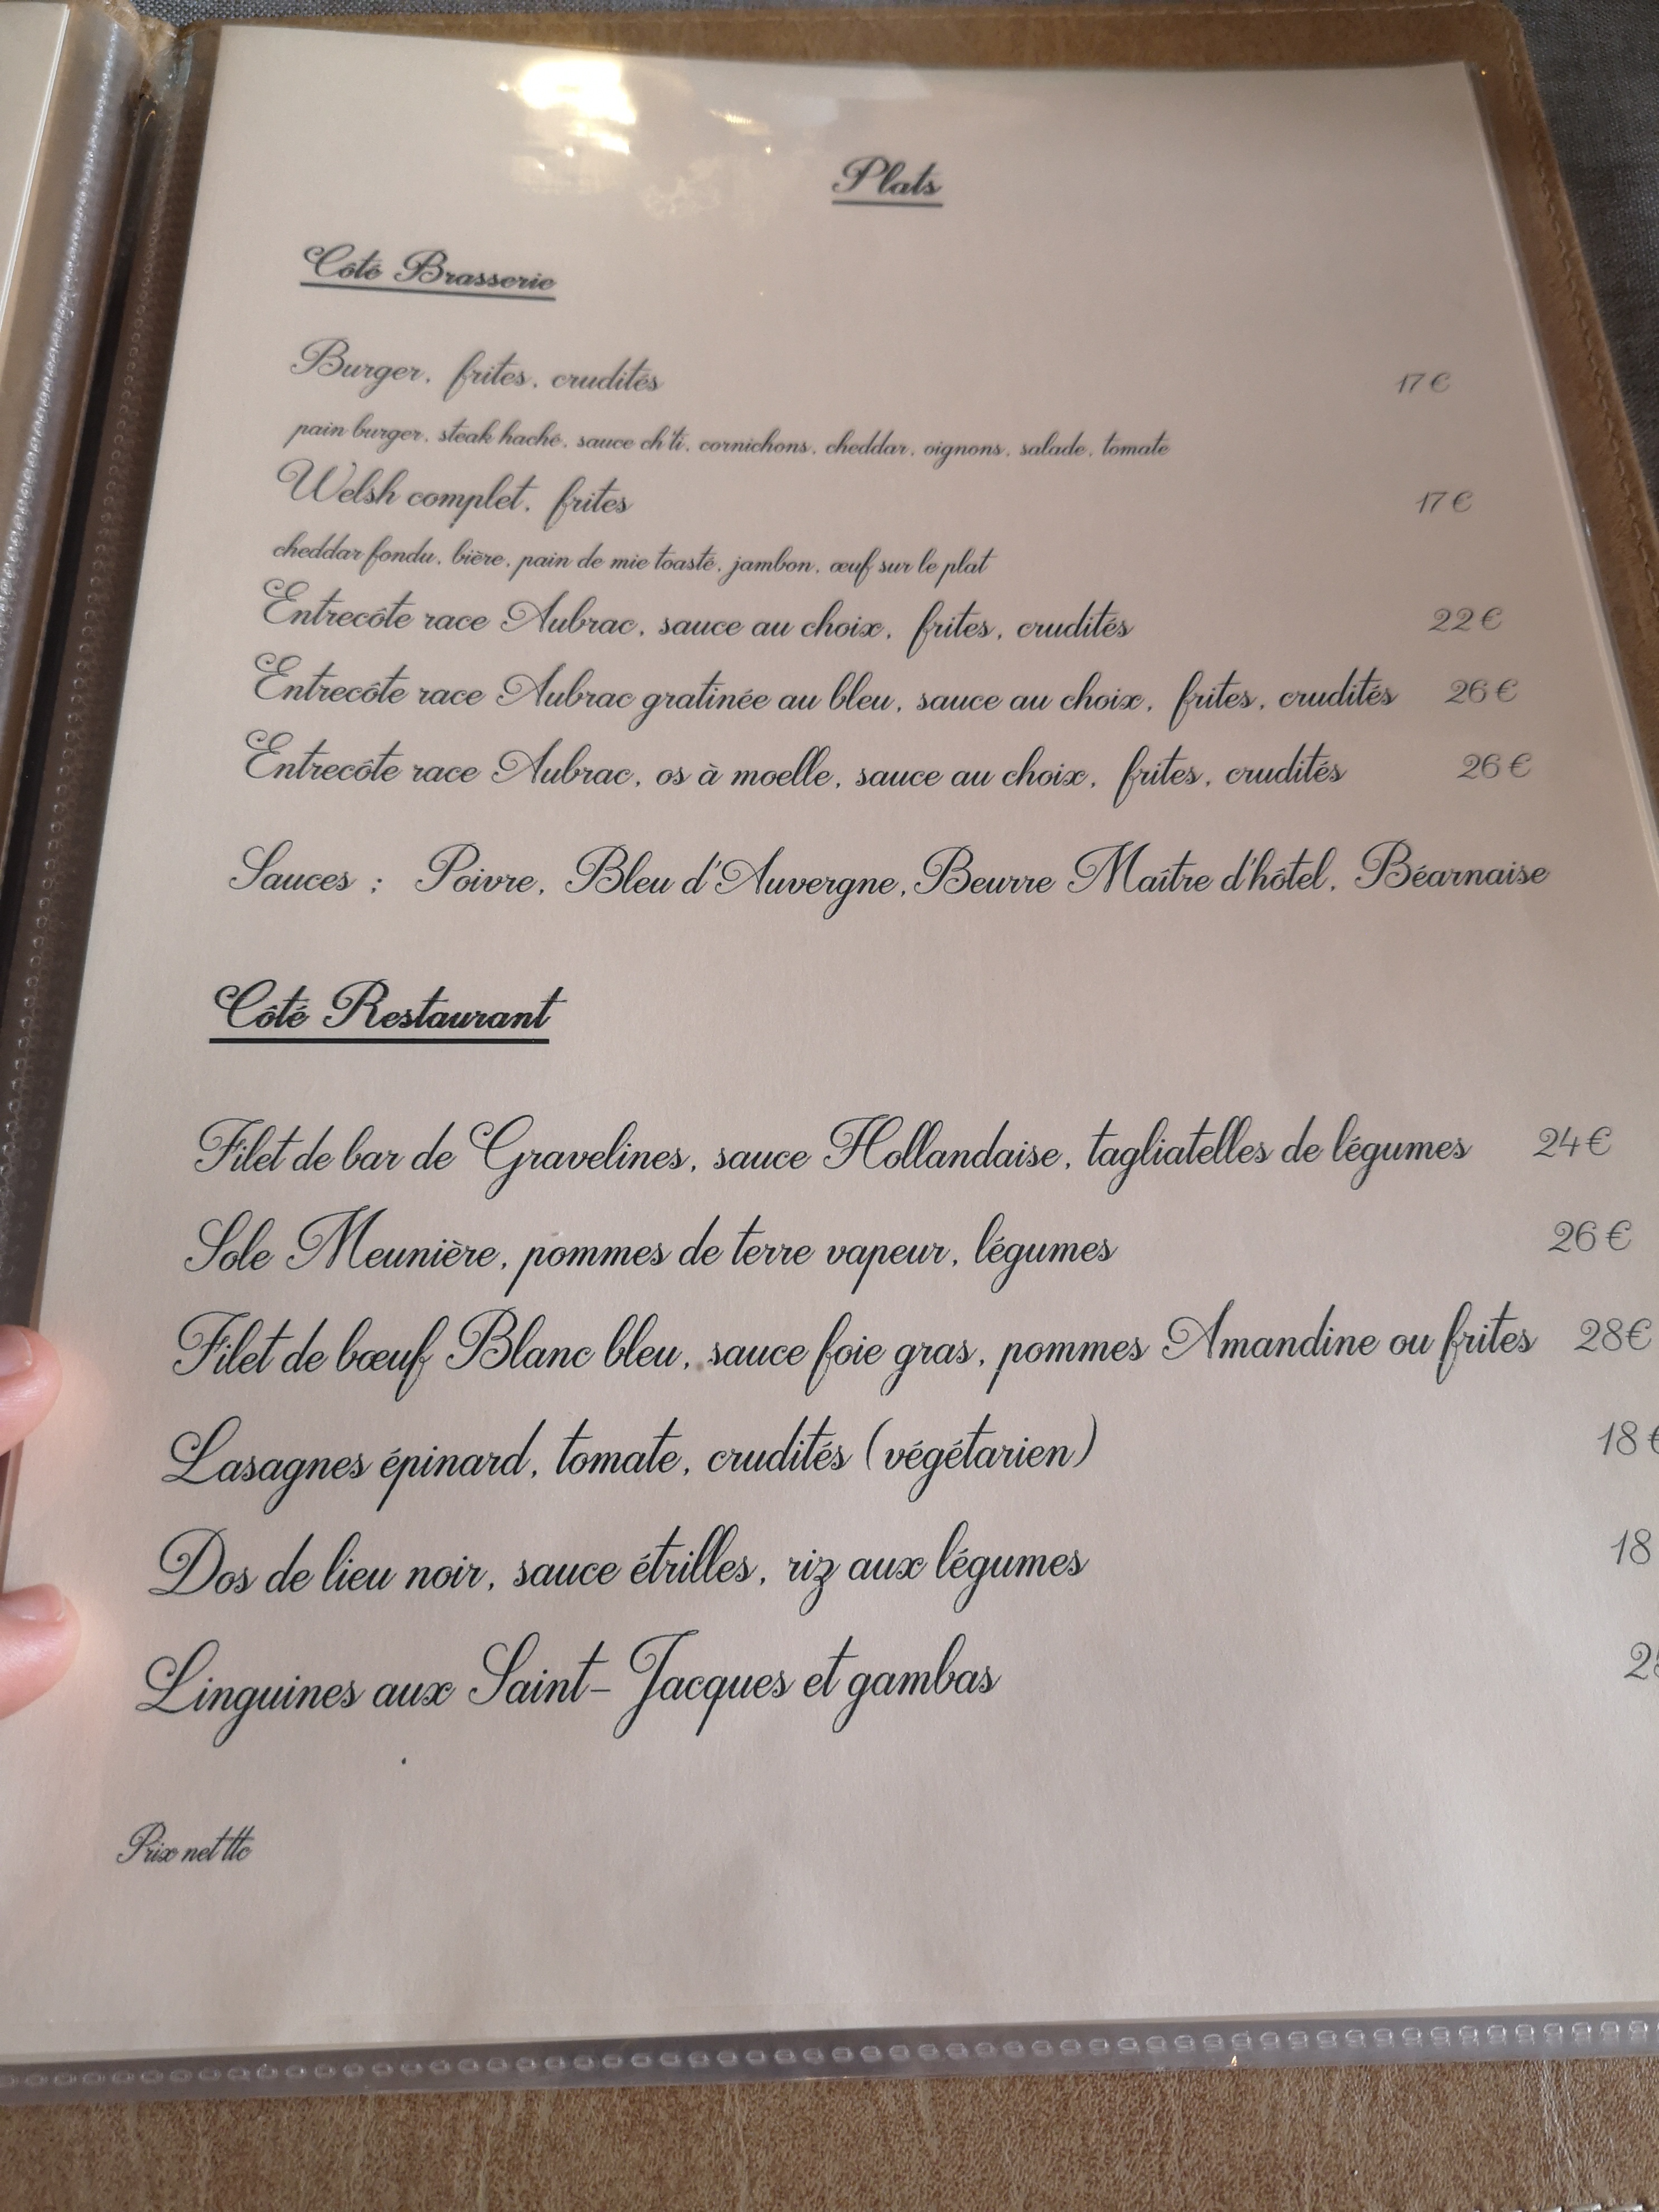 Plats
Côté Brasserie
Burger, frites, crudités 17 €
pain burger, steak haché, sauce ch'ti, cornichons, cheddar, oignons, salade, tomate
Welsh complet, frites 17 €
cheddar fondu, bière, pain de mie toasté, jambon, œuf sur le plat
Entrecôte race Aubrac, sauce au choix, frites, crudités 22 €
Entrecôte race Aubrac gratinée au bleu, sauce au choix, frites, crudités 26 €
Entrecôte race Aubrac, os à moelle, sauce au choix, frites, crudités 26 €
Sauces : Poivre, Bleu d'Auvergne, Beurre Maître d'hôtel, Béarnaise
Côté Restaurant
Filet de bar de Gravelines, sauce Hollandaise, tagliatelles de légumes 24 €
Sole Meunière, pommes de terre vapeur, légumes 26 €
Filet de bœuf Blanc bleu, sauce foie gras, pommes Amandine ou frites 28€
Lasagnes épinard, tomate, crudités (végétarien) 18 €
Dos de lieu noir, sauce étrilles, riz aux légumes 18
Linguines aux Saint-Jacques et gambas
Prix net ttc